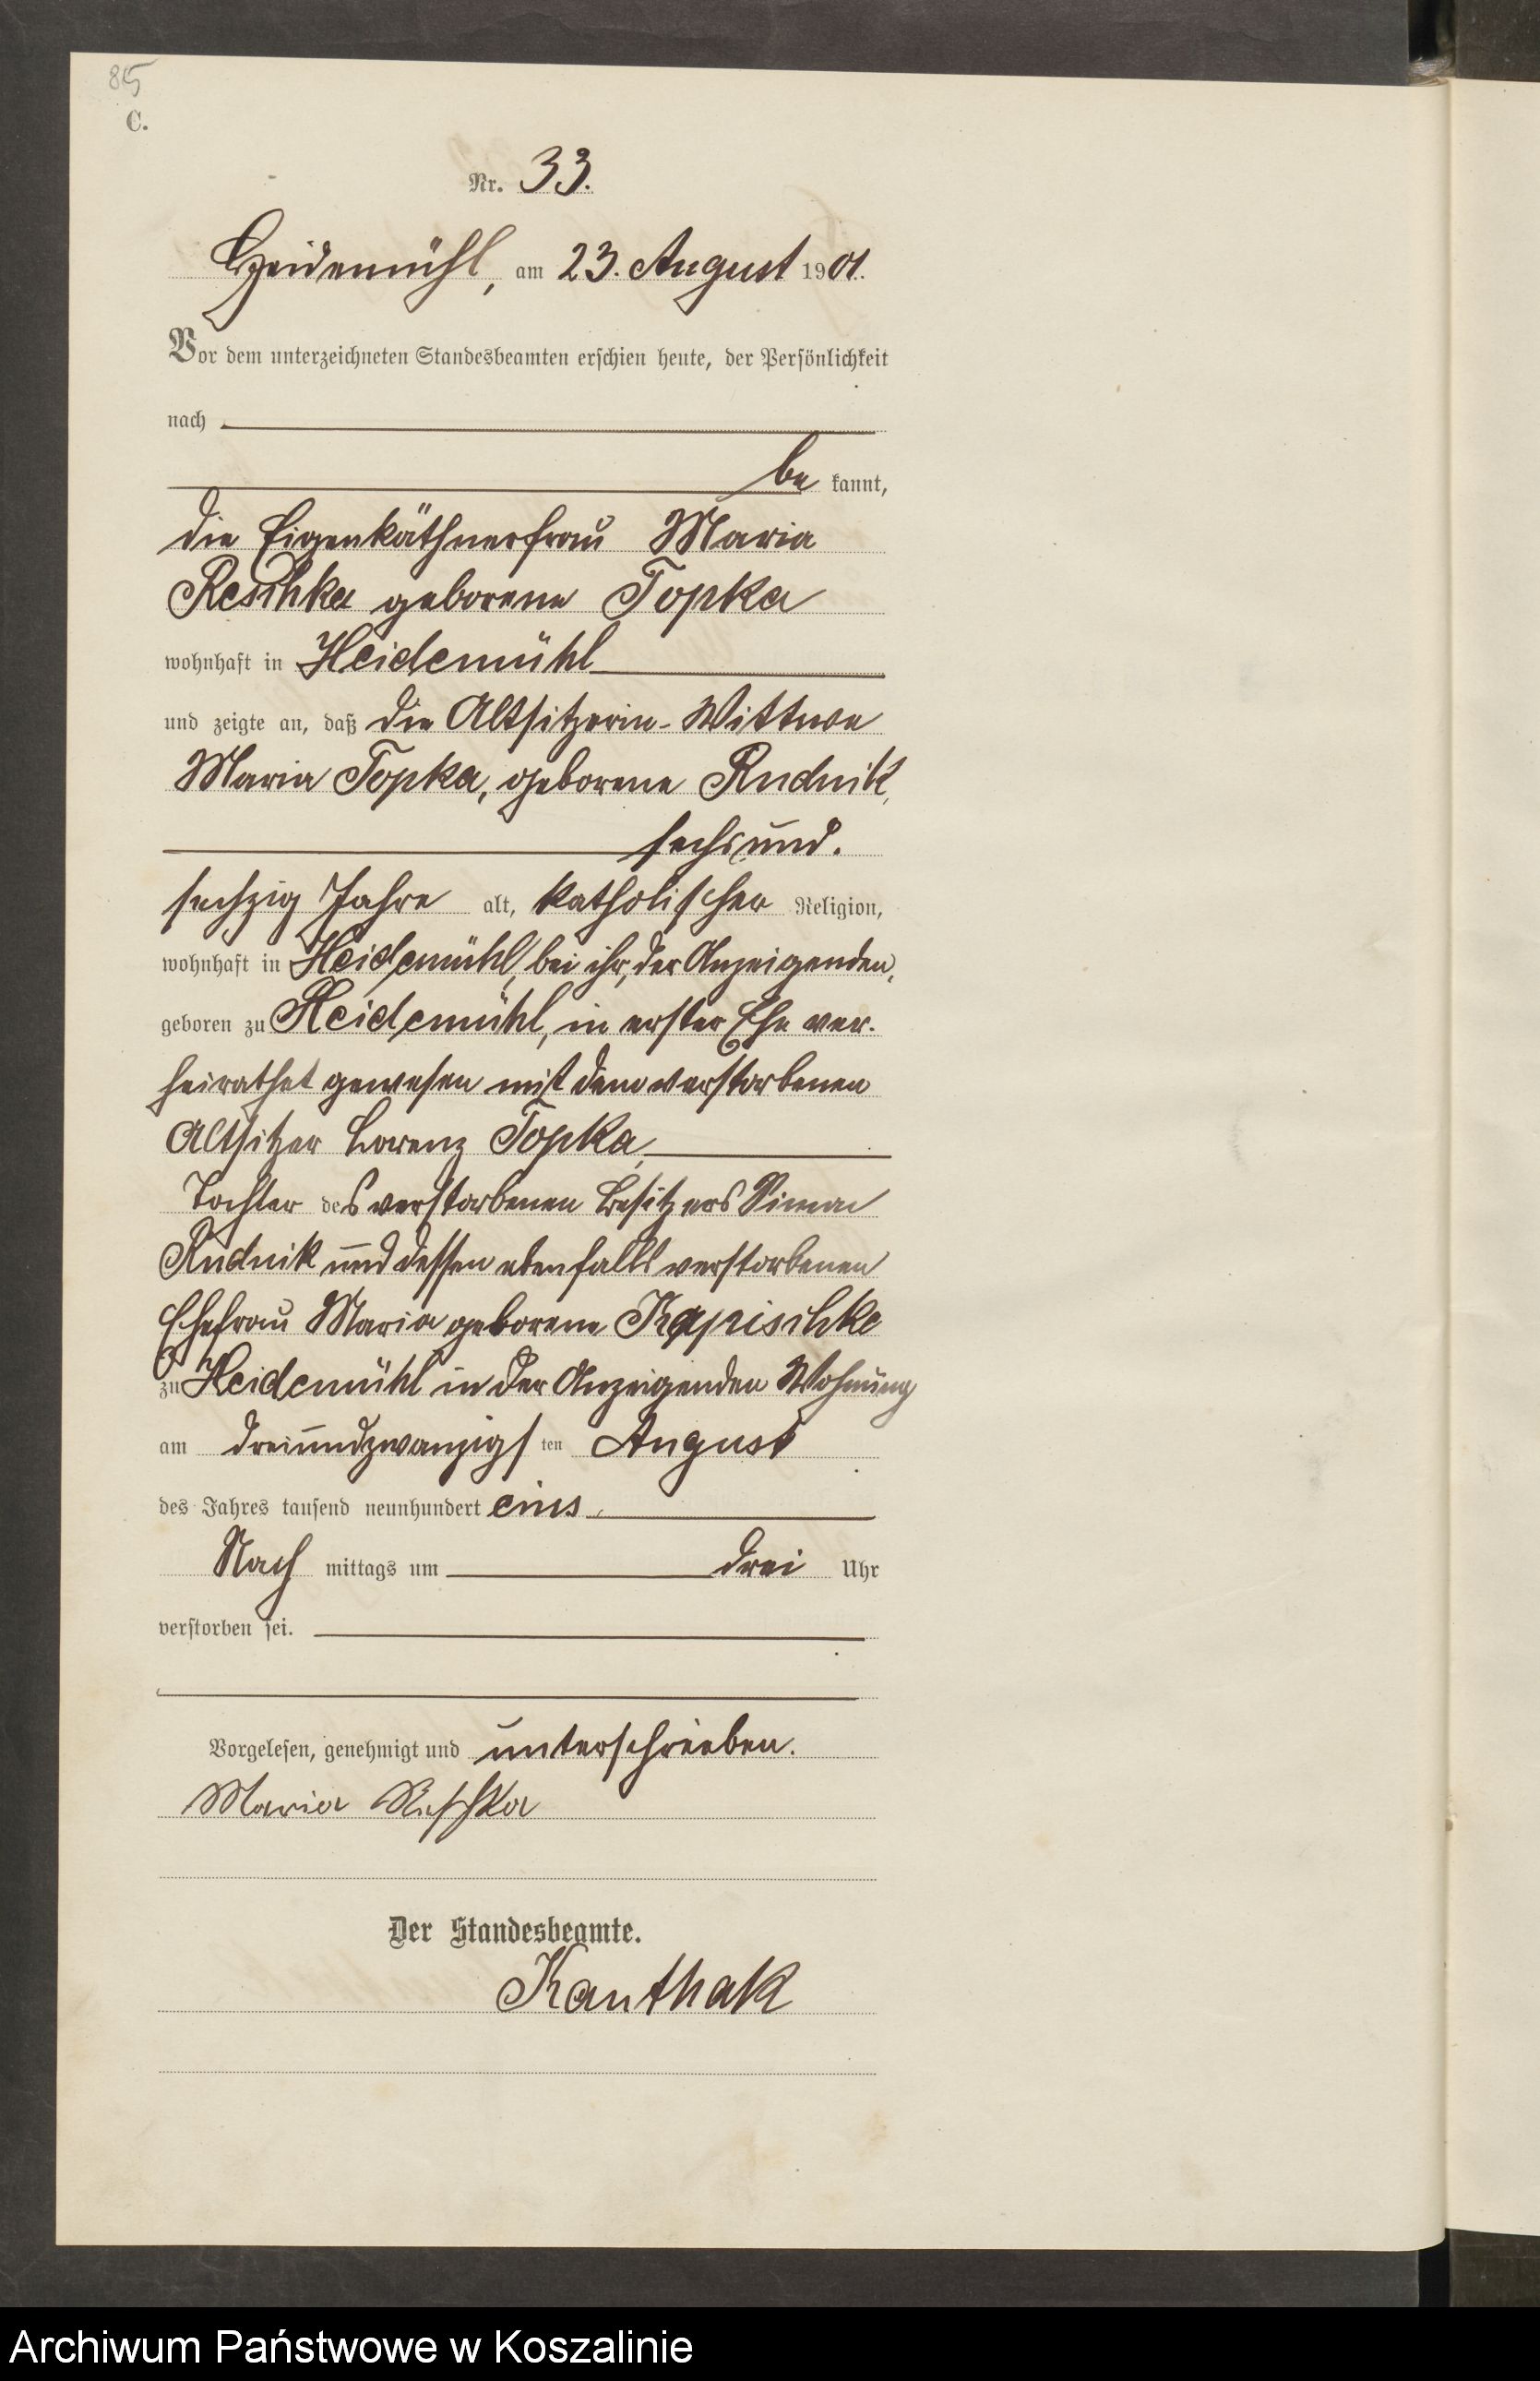 85
C.
Nr. 33.
Heidemühl, am 23. August 1901.
Vor dem unterzeichneten Standesbeamten erschien heute, der Persönlichkeit
nach
be kannt,
die Eigenkäthnerfrau Maria
Reschka geborene Topka
wohnhaft in Heidemühl
und zeigte an, daß die Altsitzerin-Wittwe
Maria Topka, geborene Rudnik,
sechsund-
sechzig Jahre alt, katholischer Religion,
wohnhaft in Heidemühl, bei ihr, der Anzeigenden,
geboren zu Heidemühl, in erster Ehe ver-
heirathet gewesen mit dem verstorbenen
Altsitzer Lorenz Topka,
Tochter des verstorbenen Besitzers Simon
Rudnik und dessen ebenfalls verstorbenen
Ehefrau Maria geborene Kapischke
zu Heidemühl in der Anzeigenden Wohnung
am dreiundzwanzigs ten August
des Jahres tausend neunhundert eins
Nach mittags um drei Uhr
verstorben sei.
Vorgelesen, genehmigt und unterschrieben.
Maria Reschka
Der Standesbeamte.
Kanthak
Archiwum Państwowe w Koszalinie